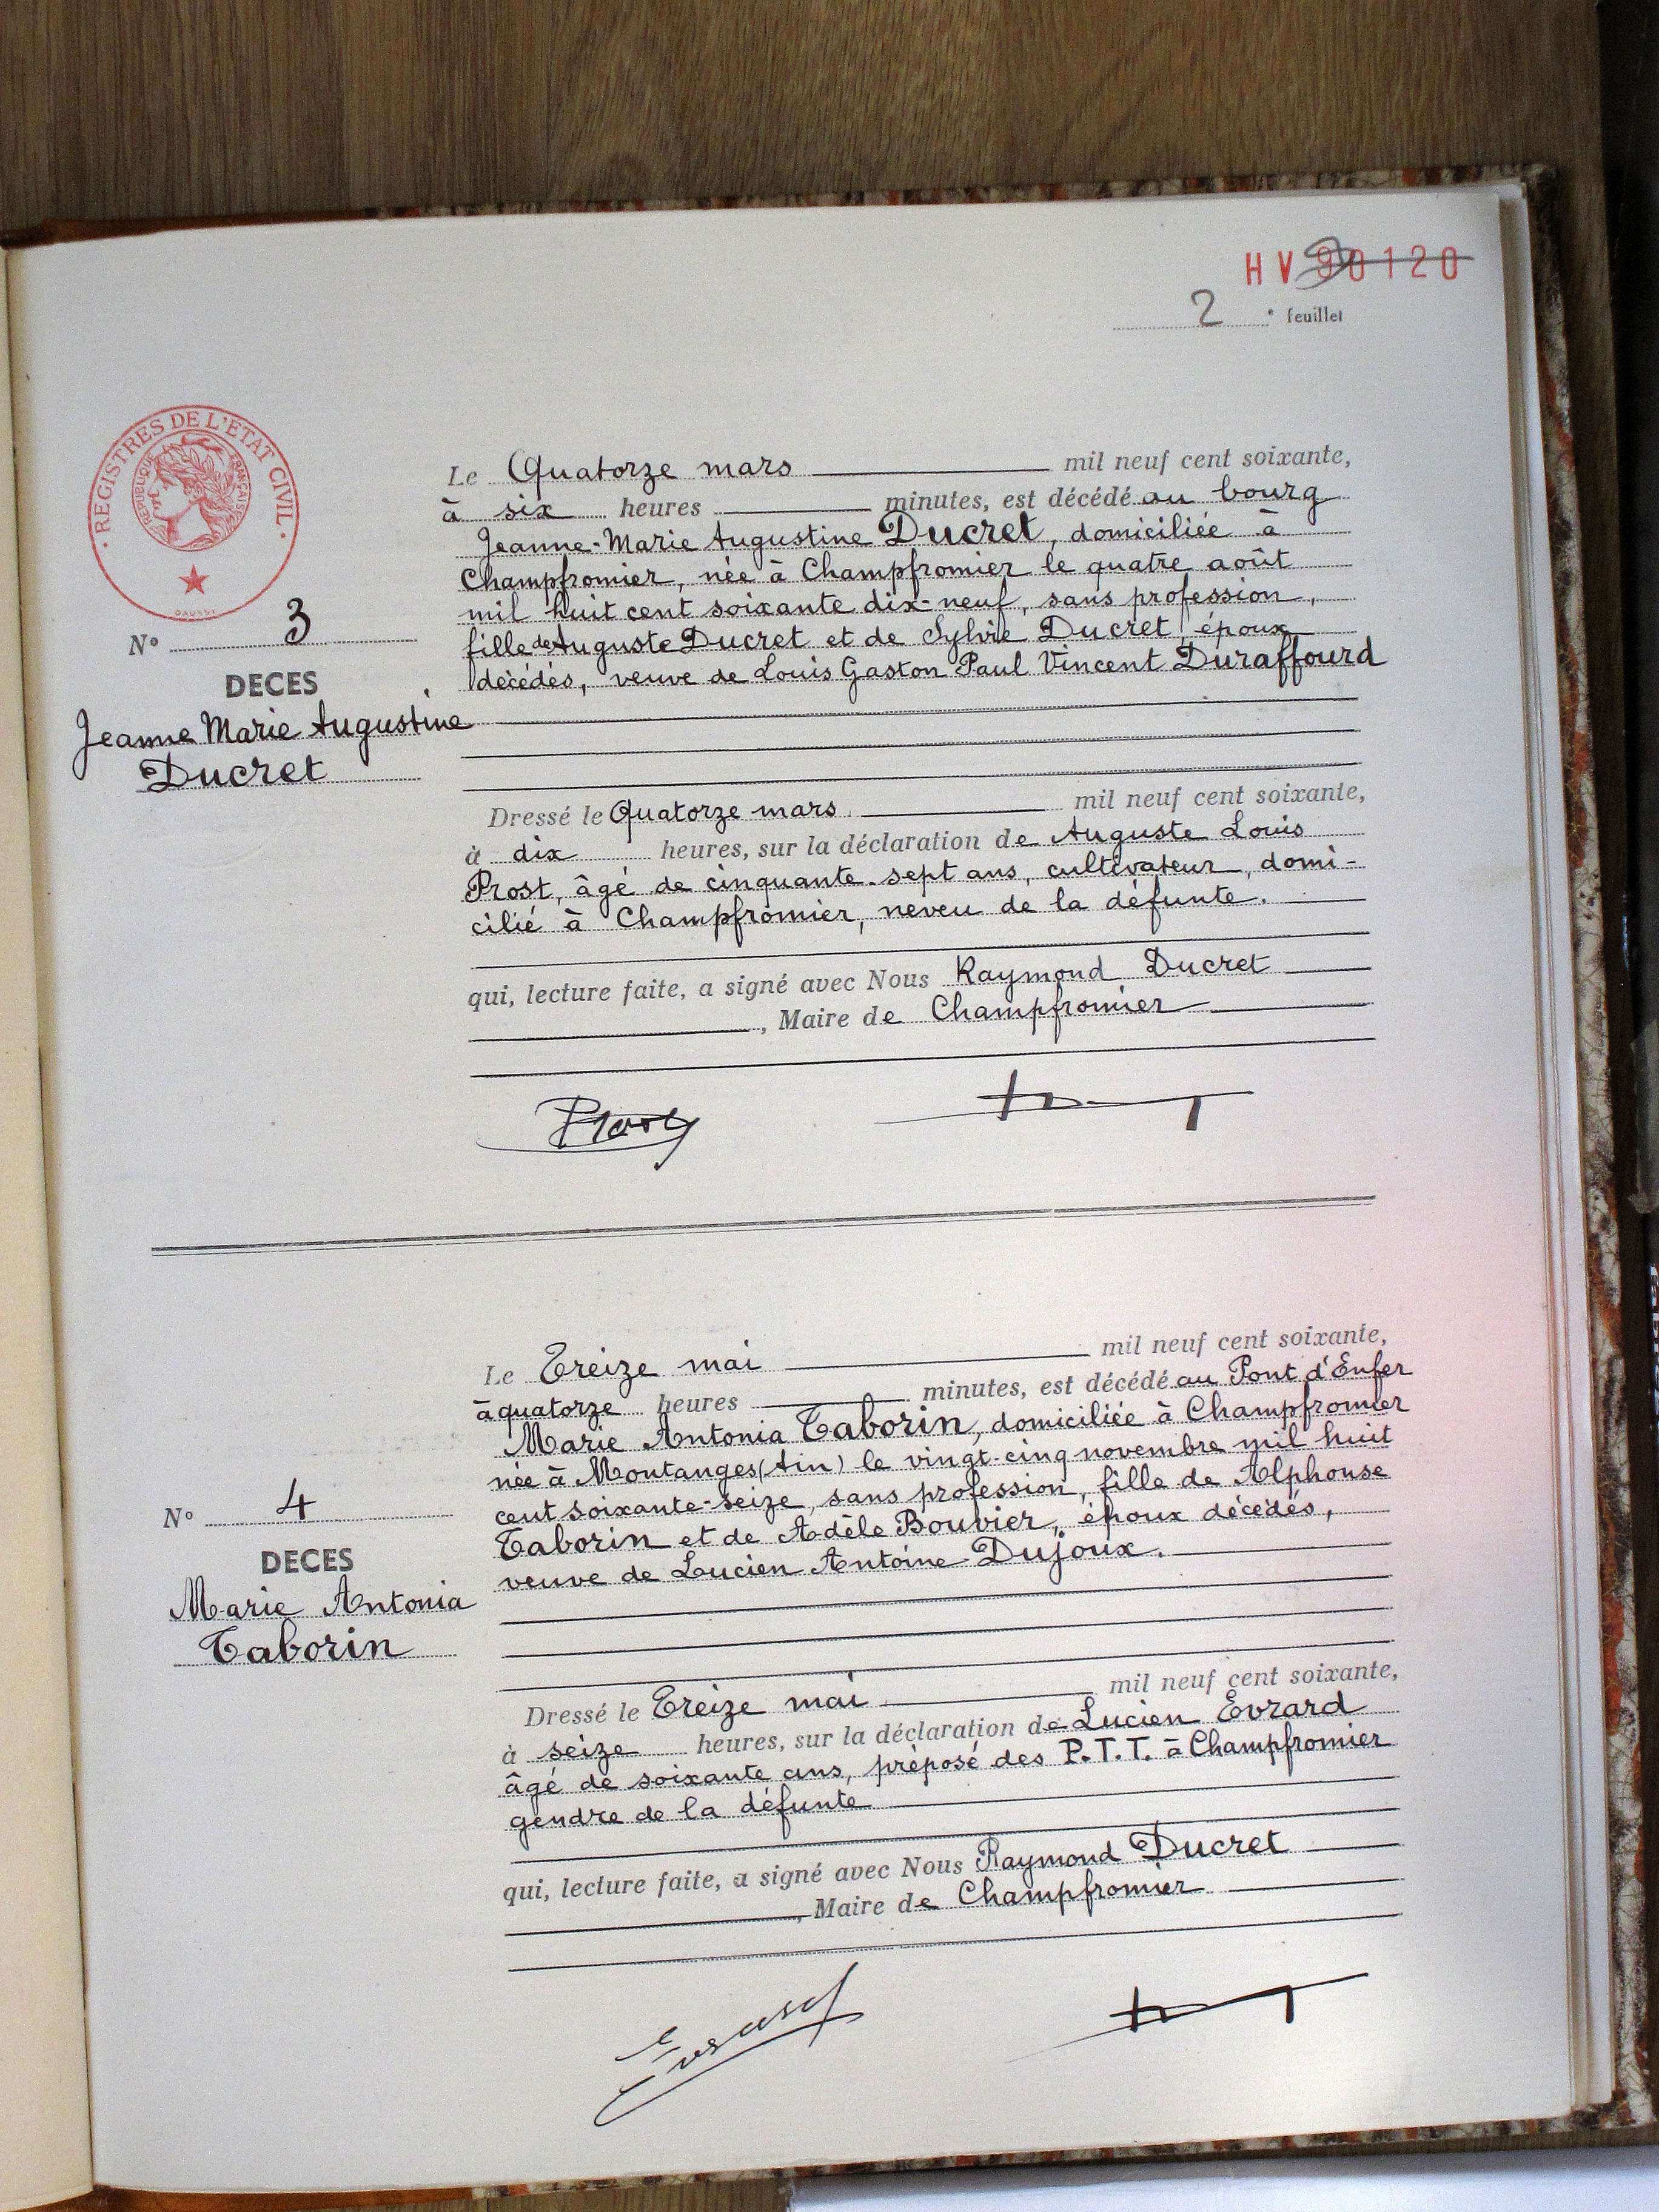 HV 90120
2 e feuillet
REGISTRES DE L'ETAT CIVIL
REPUBLIQUE FRANÇAISE
N° 3
DECES
Jeanne Marie Augustine
Ducret
Le Quatorze mars mil neuf cent soixante,
à six heures minutes, est décédé au bourg
Jeanne-Marie Augustine Ducret, domiciliée à
Champfromier, née à Champfromier le quatre août
mil huit cent soixante dix-neuf, sans profession,
fille de Auguste Ducret et de Sylvie Ducret, époux
décédés, veuve de Louis Gaston Paul Vincent Duraffourd
Dressé le Quatorze mars mil neuf cent soixante,
à dix heures, sur la déclaration de Auguste Louis
Prost, âgé de cinquante-sept ans, cultivateur, domi-
cilié à Champfromier, neveu de la défunte.
qui, lecture faite, a signé avec Nous Raymond Ducret
, Maire de Champfromier
Prost
N° 4
DECES
Marie Antonia
Taborin
Le Treize mai mil neuf cent soixante,
à quatorze heures minutes, est décédé au Pont d'Enfer
Marie Antonia Taborin, domiciliée à Champfromier
née à Montanges (Ain) le vingt-cinq novembre mil huit
cent soixante-seize, sans profession, fille de Alphonse
Taborin et de Adèle Bouvier, époux décédés,
veuve de Lucien Antoine Dujoux.
Dressé le Treize mai mil neuf cent soixante,
à seize heures, sur la déclaration de Lucien Evrard
âgé de soixante ans, préposé des P.T.T. à Champfromier
gendre de la défunte
qui, lecture faite, a signé avec Nous Raymond Ducret
, Maire de Champfromier
Evrard